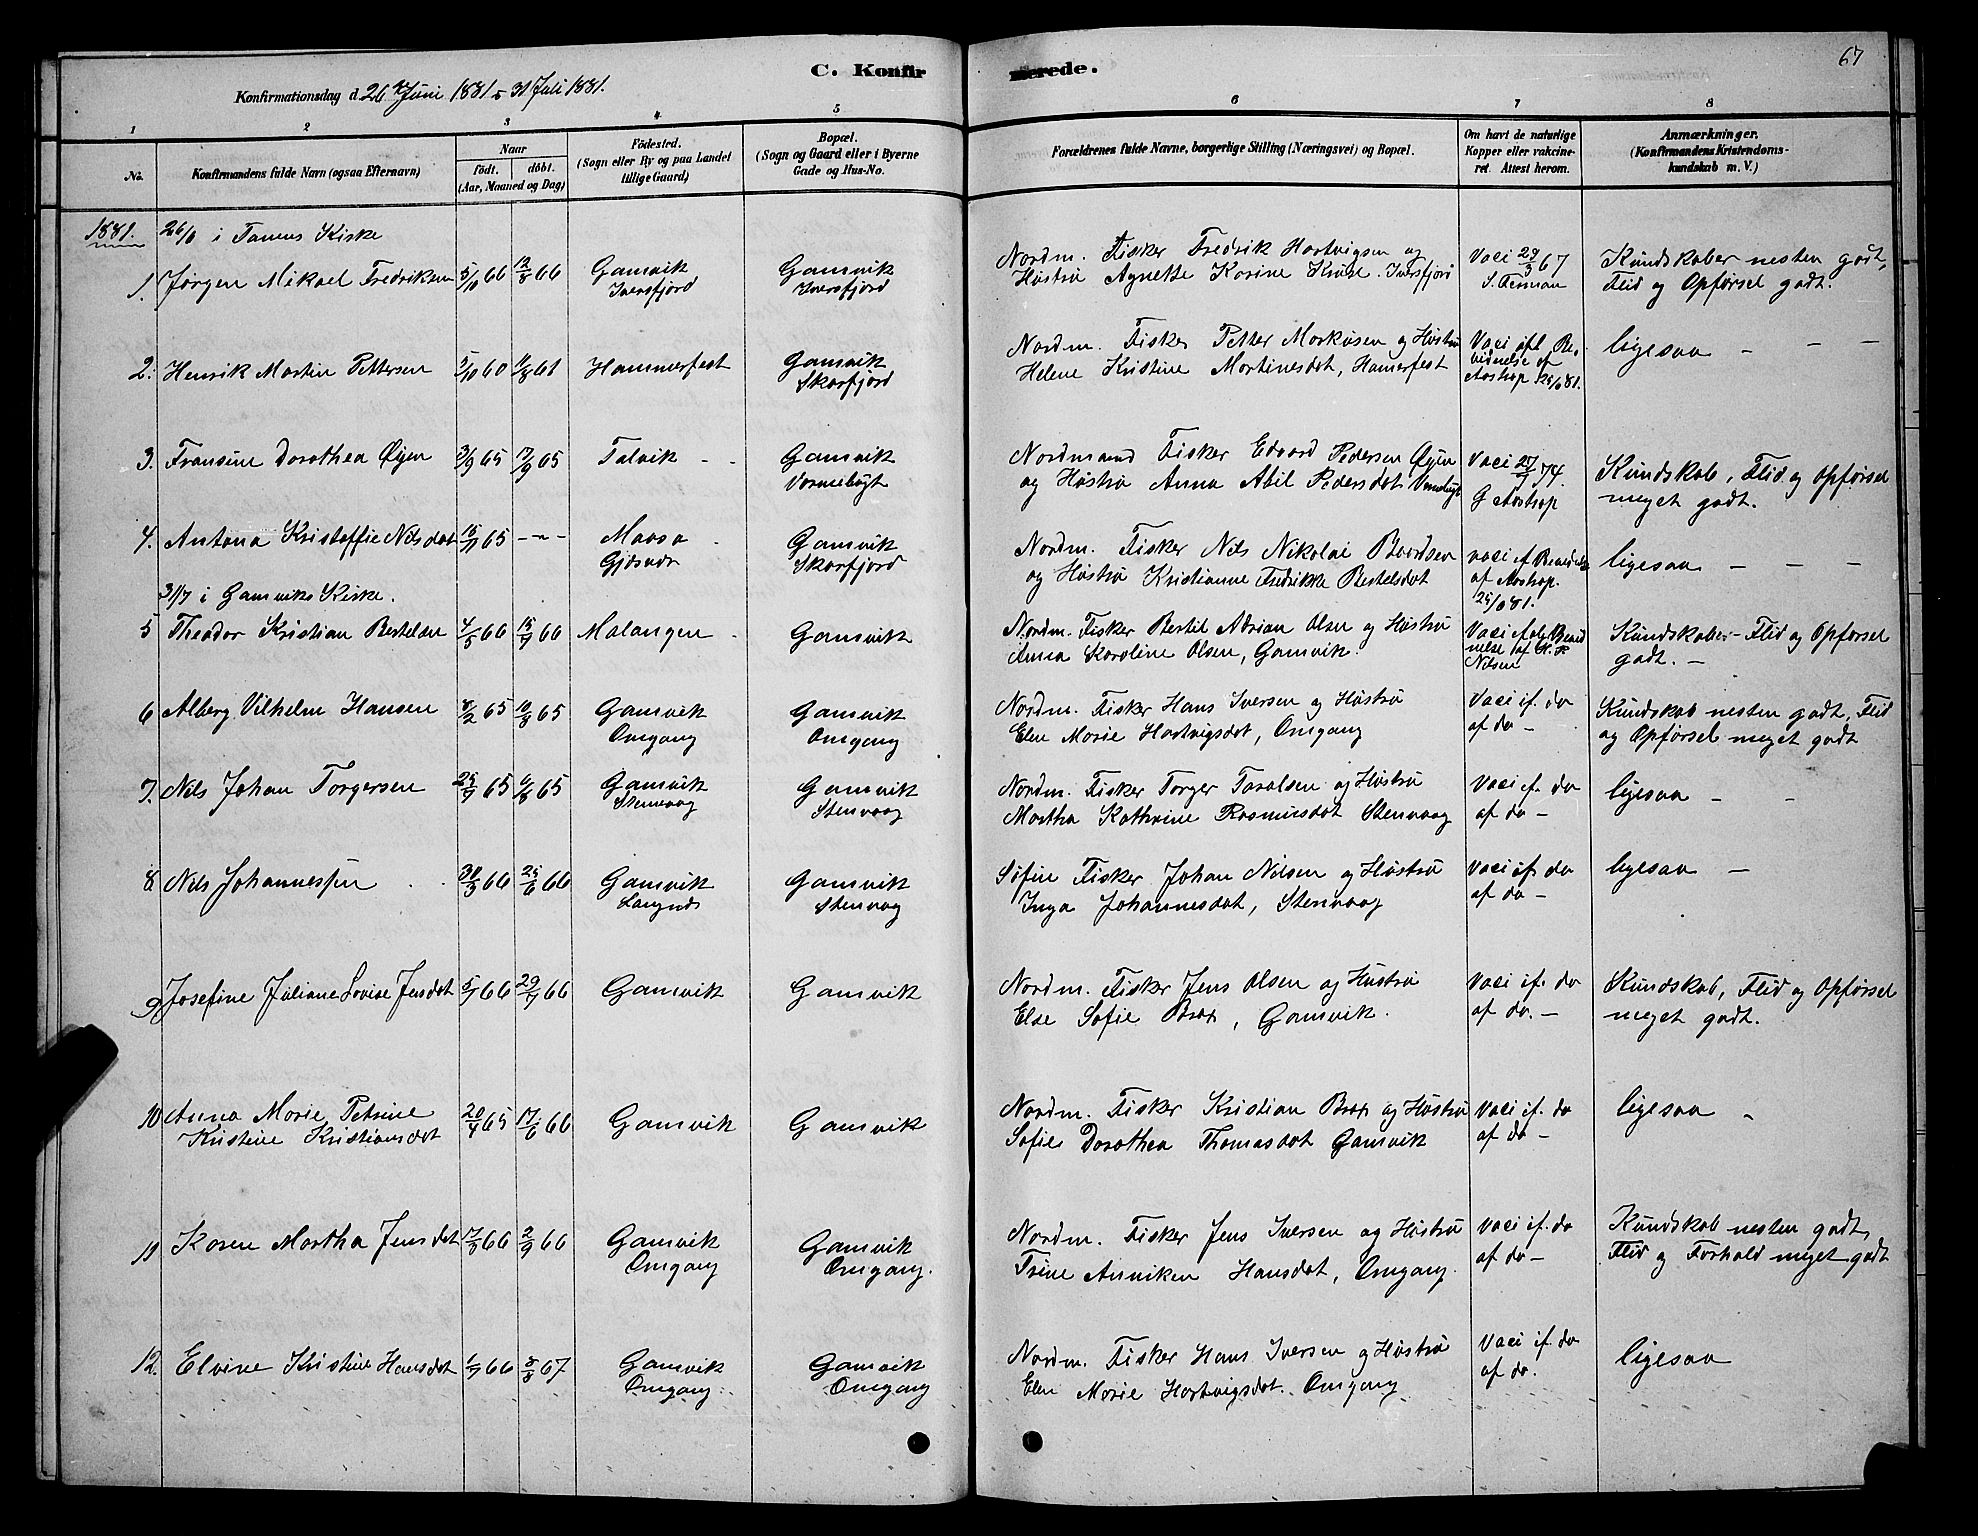 67
C. Konfirmerede.
Konfirmationsdag d. 26 Juni 1881 & 31 Juli 1881.
1 2 3 4 5 6 7 8
No.
Konfirmandens fulde Navn (ogsaa Efternavn)
Naar
födt. döbt.
(Aar, Maaned og Dag)
Födested.
(Sogn eller By og paa Landet
tillige Gaard)
Bopæl.
(Sogn og Gaard eller i Byerne
Gade og Hus-No.
Forældrenes fulde Navne, borgerlige Stilling (Næringsvei) og Bopæl.
Om havt de naturlige
Kopper eller vakcine-
ret. Attest herom.
Anmærkninger.
(Konfirmandens Kristendoms-
kundskab m. V.)
1881. 26/6 i Tanens Kirke
1. Jörgen Mikael Fredriksen 5/10 66 12/8 66 Gamvik Gamvik Nordm. Fisker Fredrik Hartvigsen og Vaci 29/3 67 Kundskaber nesten godt,
Iversfjord Iversfjord Hustru Agnette Karine Iversfjord Flid og Opförsel godt.
2. Henrik Martin Pettersen 5/10 60 1/8 61 Hammerfest Gamvik Nordm. Fisker Petter Markusen og Hustru ligesaa — — —
Skarfjord Helene Kristine Martinesdat, Hamerfest
3. Fransine Dorothea Öijen 3/9 65 17/9 65 Talvik - - Gamvik Nordmand Fisker Edvard Pedersen Öijen Vaci 27/7 74. Kundskab, Flid og Opförsel
og Hustru Anna Abil Pedersdat G Aastrop meget godt.
4. Antona Kristoffie Nilsdat 15/11 65 - - - Maasö Gamvik Nordm. Fisker Nils Nikolai Baardsen ligesaa — — —
Gjesvær Skarfjord og Hustru Kristianne Fredrikke Bertelsdat af Aastrop.
31/7 i Gamviks Kirke.
5 Theodor Kristian Bertelsen 4/5 66 15/7 66 Malangen - Gamvik Nordm. Fisker Bertil Adrian Olsen og Hustru Kundskaber - Flid og Opförsel
Anna Karoline Olsen, Gamvik. Nilsen godt. —
6 Alberg Vilhelm Hansen 8/2 65 10/8 65 Gamvik Gamvik Nordm. Fisker Hans Iversen og Hustru Vaci if. do Kundskab nesten godt, Flid
Omgang Omgang Elen Marie Hartvigsdat, Omgang af do — og Opförsel meget godt
7. Nils Johan Torgersen 25/7 65 6/8 65 Gamvik Gamvik Nordm. Fisker Torger Taralsen og Hustru Vaci if. do ligesaa — -
Stenvaag Stenvaag Martha Kathrine Rasmusdat Stenvaag af do —
8 Nils Johannessen 30/3 66 25/6 66 Gamvik Gamvik Söfin Fisker Johan Nilsen og Hustru Vaci if. do ligesaa —
Langnes Stenvaag Inga Johannesdat, Stenvaag af do —
9 Josefine Juliane Lovise Jensdat 5/7 66 29/7 66 Gamvik Gamvik Nordm. Fisker Jens Olsen og Hustru Vaci if. do Kundskab, Flid og Opförsel
Else Sofie Brox, Gamvik. af do. — meget godt.
10 Anna Marie Petrine 20/4 65 17/6 66 Gamvik Gamvik Nordm. Fisker Kristian Brox og Hustru Vaci if. do ligesaa -
Kristine Kristiansdat Sofie Dorothea Thomasdat Gamvik af do —
11 Karen Martha Jensdat 17/3 66 2/9 66 Gamvik Gamvik Nordm. Fisker Jens Iversen og Hustru Vaci if. do Kundskab nesten godt,
Omgang Omgang. Trine Anniken Hansdat, Omgang. af do — Flid og Forhold meget godt
12. Elvine Kristine Hansdat 1/7 66 8/8 67 Gamvik Gamvik Nordm. Fisker Hans Iversen og Hustru Vaci if. do ligesaa
Omgang. Omgang Elen Marie Hartvigsdat. Omgang af do.